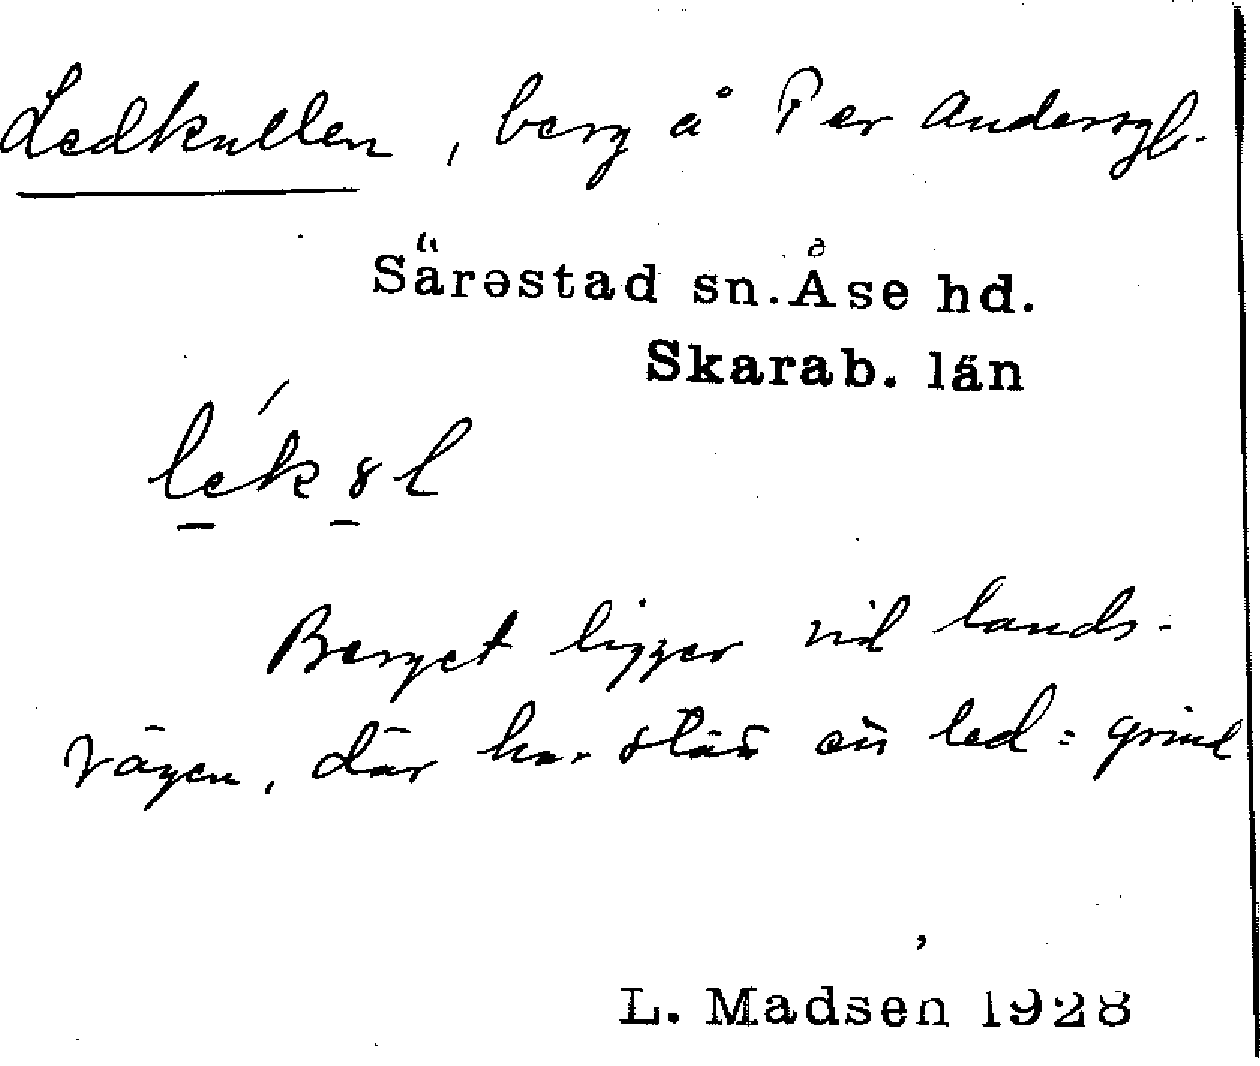 Ledkullen, berg å Per Andersgb.
Särestad sn. Åse hd.
Skarab. län
Berget ligger vid lands-
vägen, där har stått en led = grind
L. Madsen 1928